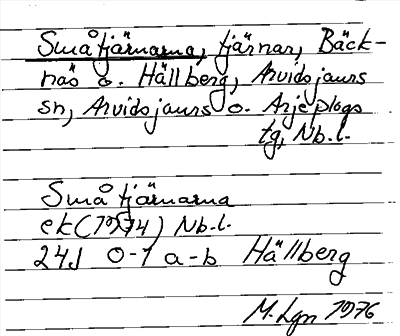 Småtjärnarna, tjärnar, Bäck-
näs o. Hällberg, Arvidsjaurs
sn, Arvidsjaurs o. Arjeplogs
tg, Nb.l.
Småtjärnarna
ek (1974) Nb.l.
24J 0-1 a-b Hällberg
M. Lgn 1976